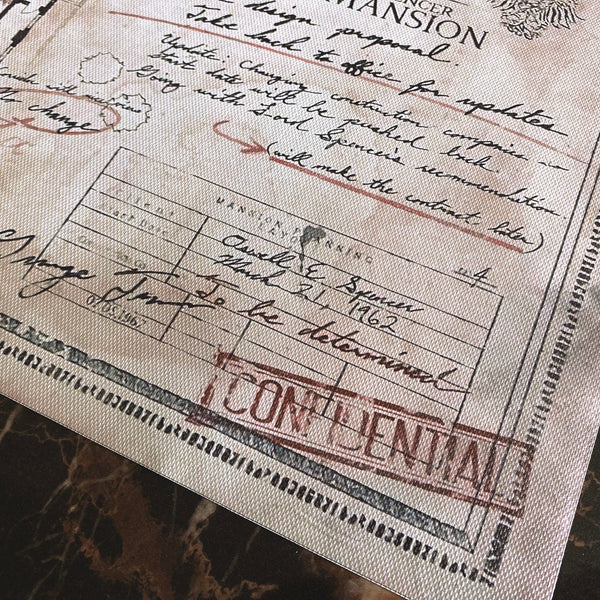 SPENCER
MANSION
design proposal.
Take back to office for updates
Update: Changing construction companies
Start date will be pushed back.
Going with Lord Spencer's recommendation.
(will make the contract later)
No change
MANSION PLANNING
LAYOUT
4
Client
Oswell E. Spencer
Start Date
March 21, 1962
To be determined
George Trevor
CONFIDENTIAL